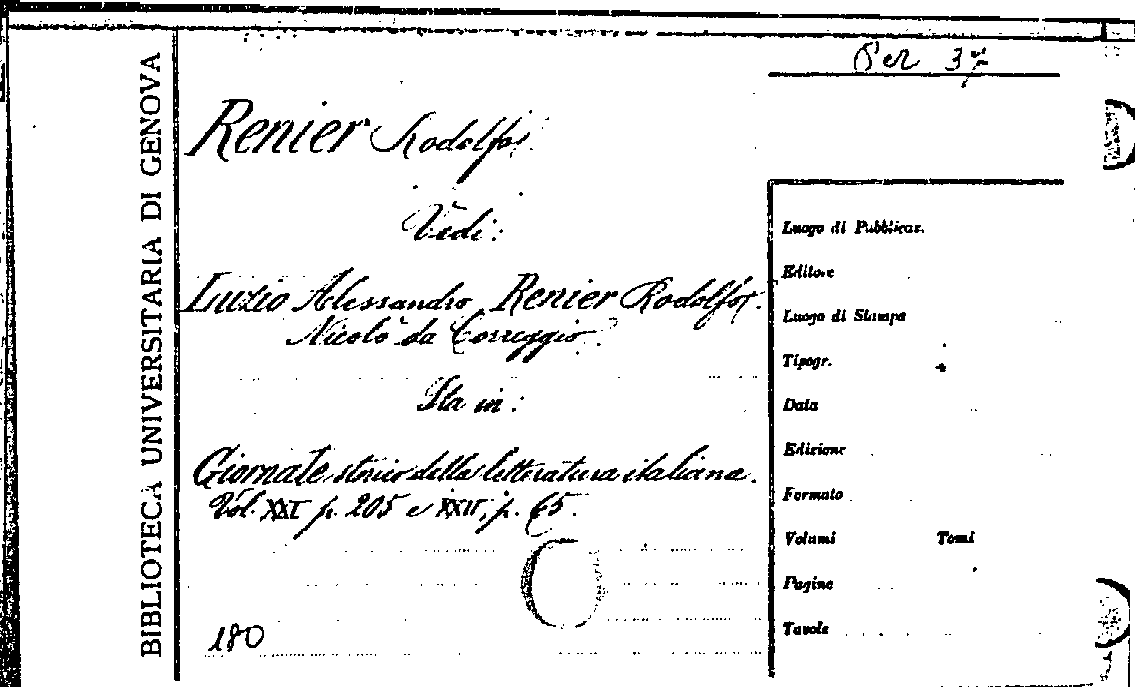 BIBLIOTECA UNIVERSITARIA DI GENOVA
Per 37
Renier Rodolfo.
Vedi:
Luzio Alessandro, Renier Rodolfo.
Nicolò da Correggio.
Sta in:
Giornale storico della letteratura italiana.
Vol. XXI p. 205 e XXII, p. 65.
180
Luogo di Pubblicaz.
Editore
Luogo di Stampa
Tipogr.
Data
Edizione
Formato
Volumi Tomi
Pagine
Tavole